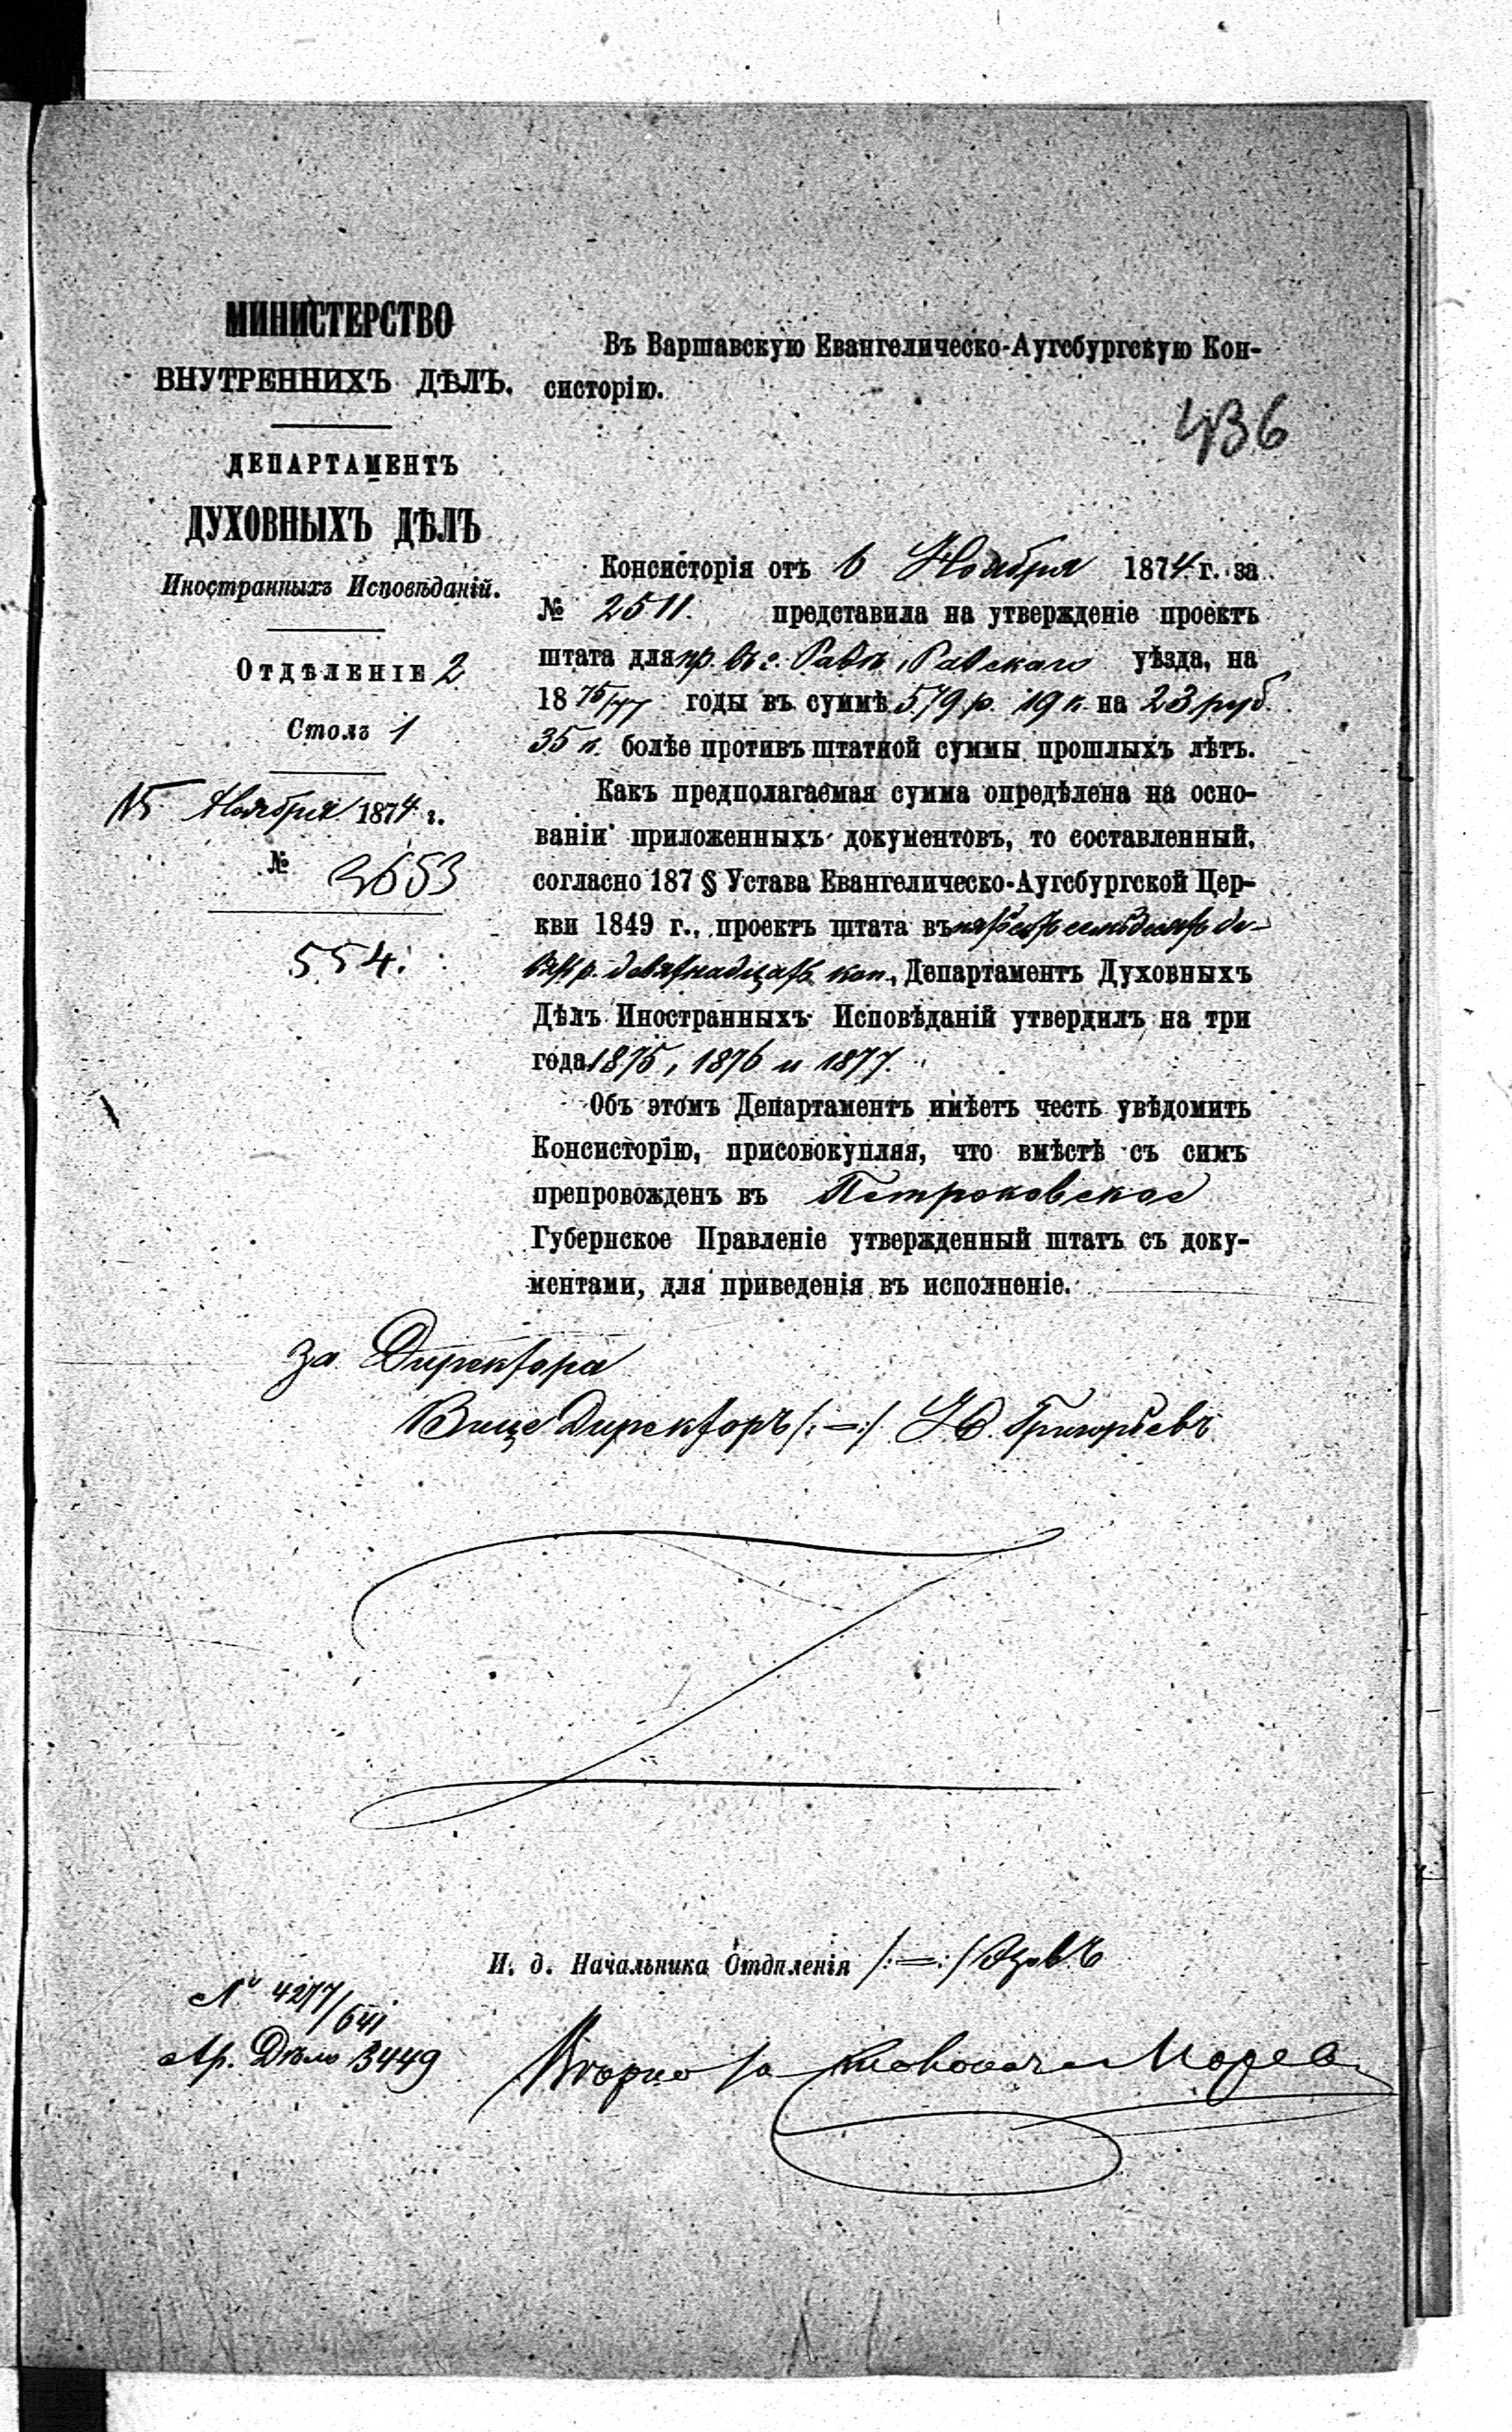 МИНИСТЕРСТВО
ВНУТРЕННИХЪ ДѢЛЪ.
ДЕПАРТАМЕНТЪ
ДУХОВНЫХЪ ДѢЛЪ
Иностранныхъ Исповѣданій.
Отдѣленіе 2
Столъ 1
15 Ноября 1874 г.
№ 3653
554.
Въ Варшавскую Евангелическо-Аугсбургскую Кон-
систорію.
436
Консисторія отъ 6 Ноября 1874 г. за
№ 2511. представила на утвержденіе проектъ
штата для пр. въ г. Равѣ, Равскаго уѣзда, на
18 75/77 годы въ суммѣ 579 р. 19 к. на 23 руб.
35 к. болѣе противъ штатной суммы прошлыхъ лѣтъ.
Какъ предполагаемая сумма опредѣлена на осно-
ваніи приложенныхъ документовъ, то составленный,
согласно 187 § Устава Евангелическо-Аугсбургской Цер-
кви 1849 г., проектъ штата въ пятьсотъ семьдесятъ де-
вять р. девятнадцать коп., Департаментъ Духовныхъ
Дѣлъ Иностранныхъ Исповѣданій утвердилъ на три
года 1875, 1876 и 1877.
Объ этомъ Департаментъ имѣетъ честь увѣдомить
Консисторію, присовокупляя, что вмѣстѣ съ симъ
препровожденъ въ Петроковское
Губернское Правленіе утвержденный штатъ съ доку-
ментами, для приведенія въ исполненіе.
За Директора
Вице Директоръ /:=:/ Ю. Григорьевъ
И. д. Начальника Отдѣленія /:=:/
№ 4277/641
Ар. Дѣло 3449